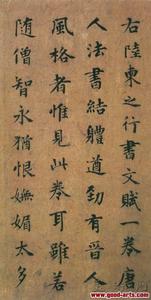 右陸東之行書文賦一卷唐
人法書結軆遒勁有晉人
風格者惟見此卷耳雖若
隨僧智永猶恨嫵媚太多
www.good-arts.com